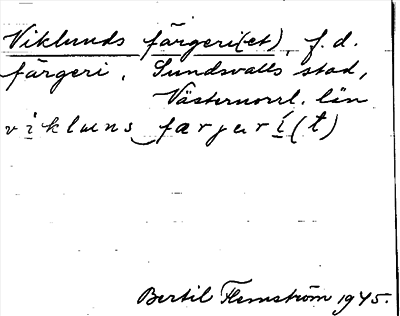 Viklunds färgeri(et), f.d.
färgeri, Sundsvalls stad,
Västernorrl. län
vikluns‿færjarí(t)
Bertil Flemström 1945.